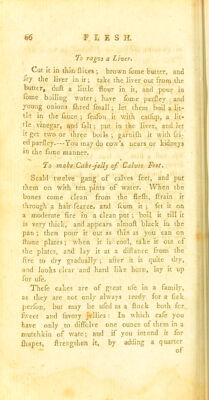 66 FLESH.
To ragoo a Liver.
Cut it in thin slices; brown some butter, and
fry the liver in it; take the liver out from the
butter, dust a little flour in it, and pour in
some boiling water; have some parsley and
young onions shred small; let them boil a lit-
tle in the sauce; season it with catsup, a lit-
tle vinegar, and salt; put in the liver, and let
it get two or three boils; garnish it with fri-
ed parsley.---You may do cow's nears or kidneys
in the same manner.
To make Cake-jelly of Calves Feet.
Scald twelve gang of calves feet, and put
them on with ten pints of water. When the
bones come clean from the flesh, strain it
through a hair-searce, and scum it; set it on
a moderate fire in a clean pot; boil it till it
is very thick, and appears almost black in the
pan; then pour it out as thin as you can on
stone plates; when it is cool, take it out of
the plates, and lay it at a distance from the
fire to dry gradually; after it is quite dry,
and looks clear and hard like horn, lay it up
for use.
These cakes are of great use in a family,
as they are not only always ready for a sick
person, but may be used as a stock both for
sweet and savory jellies: In which case you
have only to dissolve one ounce of them in a
mutchkin of water; and if you intend it for
shapes, strengthen it, by adding a quarter
of